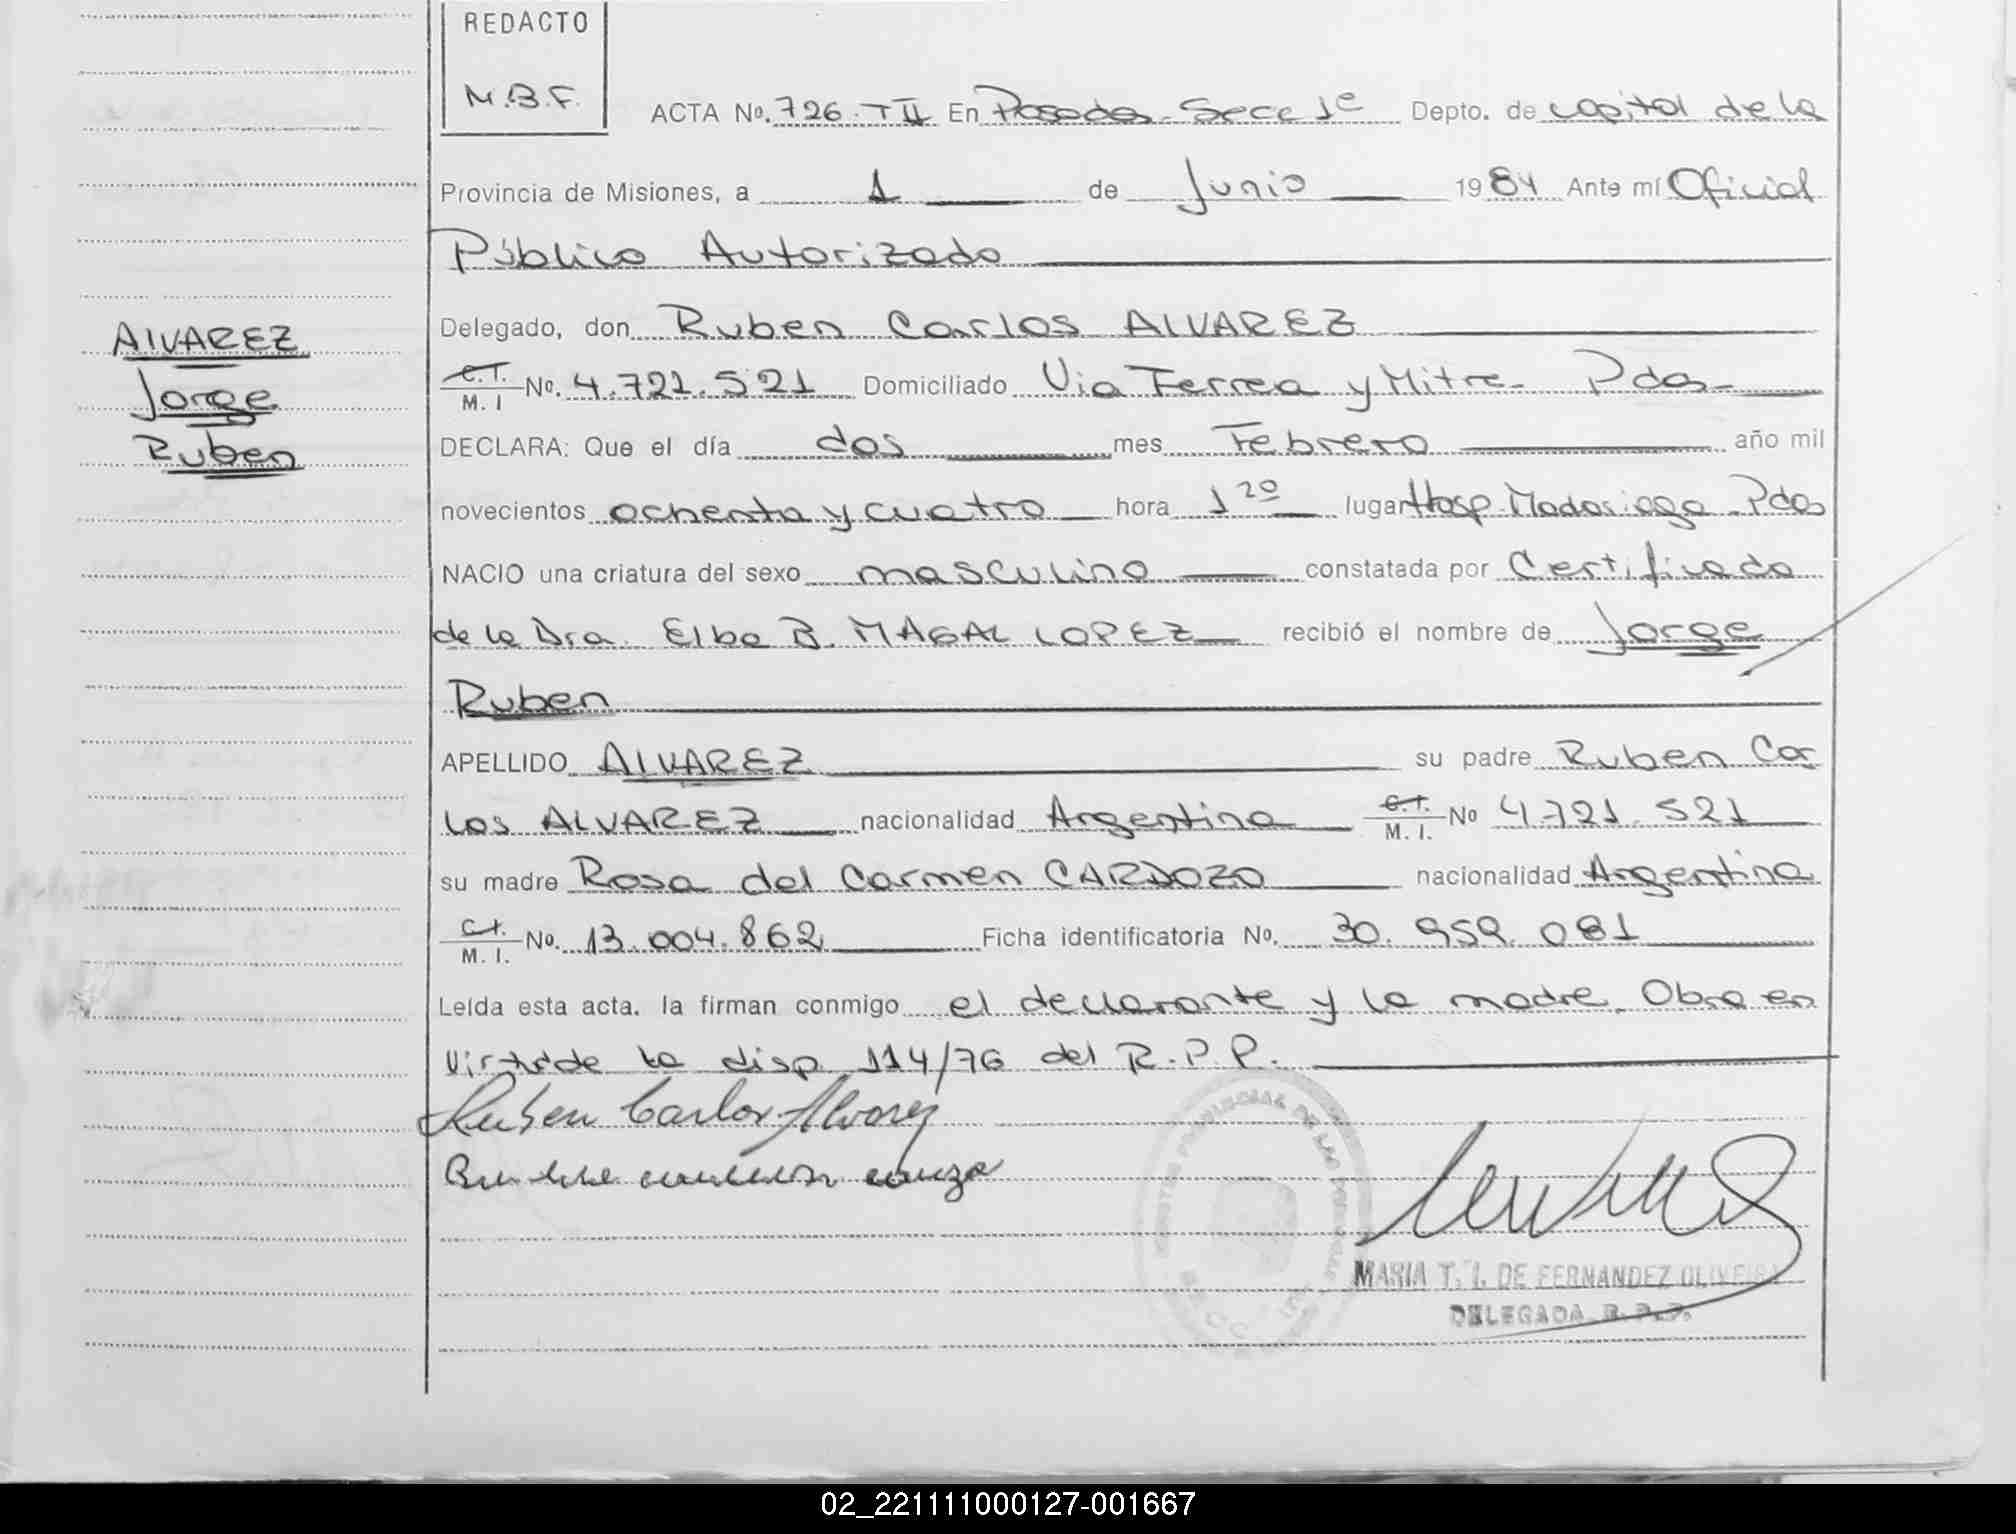 REDACTO
M.B.F.
ACTA No. 726. T II En Posadas - Secc 1e Depto. de capital de la
Provincia de Misiones, a 1 de Junio 1984 Ante mí Oficial
Público Autorizado
Delegado, don Ruben Carlos ALVAREZ
C.I. / M. I No. 4.721.521 Domiciliado Via Ferrea y Mitre - Pdas -
DECLARA: Que el día dos mes Febrero año mil
novecientos ochenta y cuatro hora 1 20 lugar Hosp. Madariaga - Pdas
NACIO una criatura del sexo masculino constatada por Certificado
de la Dra. Elba B. MAGAL LOPEZ recibió el nombre de Jorge
Ruben
APELLIDO ALVAREZ su padre Ruben Car
los ALVAREZ nacionalidad Argentina C.I. / M. I. No 4.721.521
su madre Rosa del Carmen CARDOZO nacionalidad Argentina
C.I. / M. I. No. 13.004.862 Ficha identificatoria No. 30.959.081
Leída esta acta, la firman conmigo el declarante y la madre. Obra en
Virtud de la disp. 114/76 del R.P.P.
Ruben Carlos Alvarez
MARIA T. I. DE FERNANDEZ OLIVEIRA
DELEGADA R.P.P.
ALVAREZ
Jorge
Ruben
02_221111000127-001667